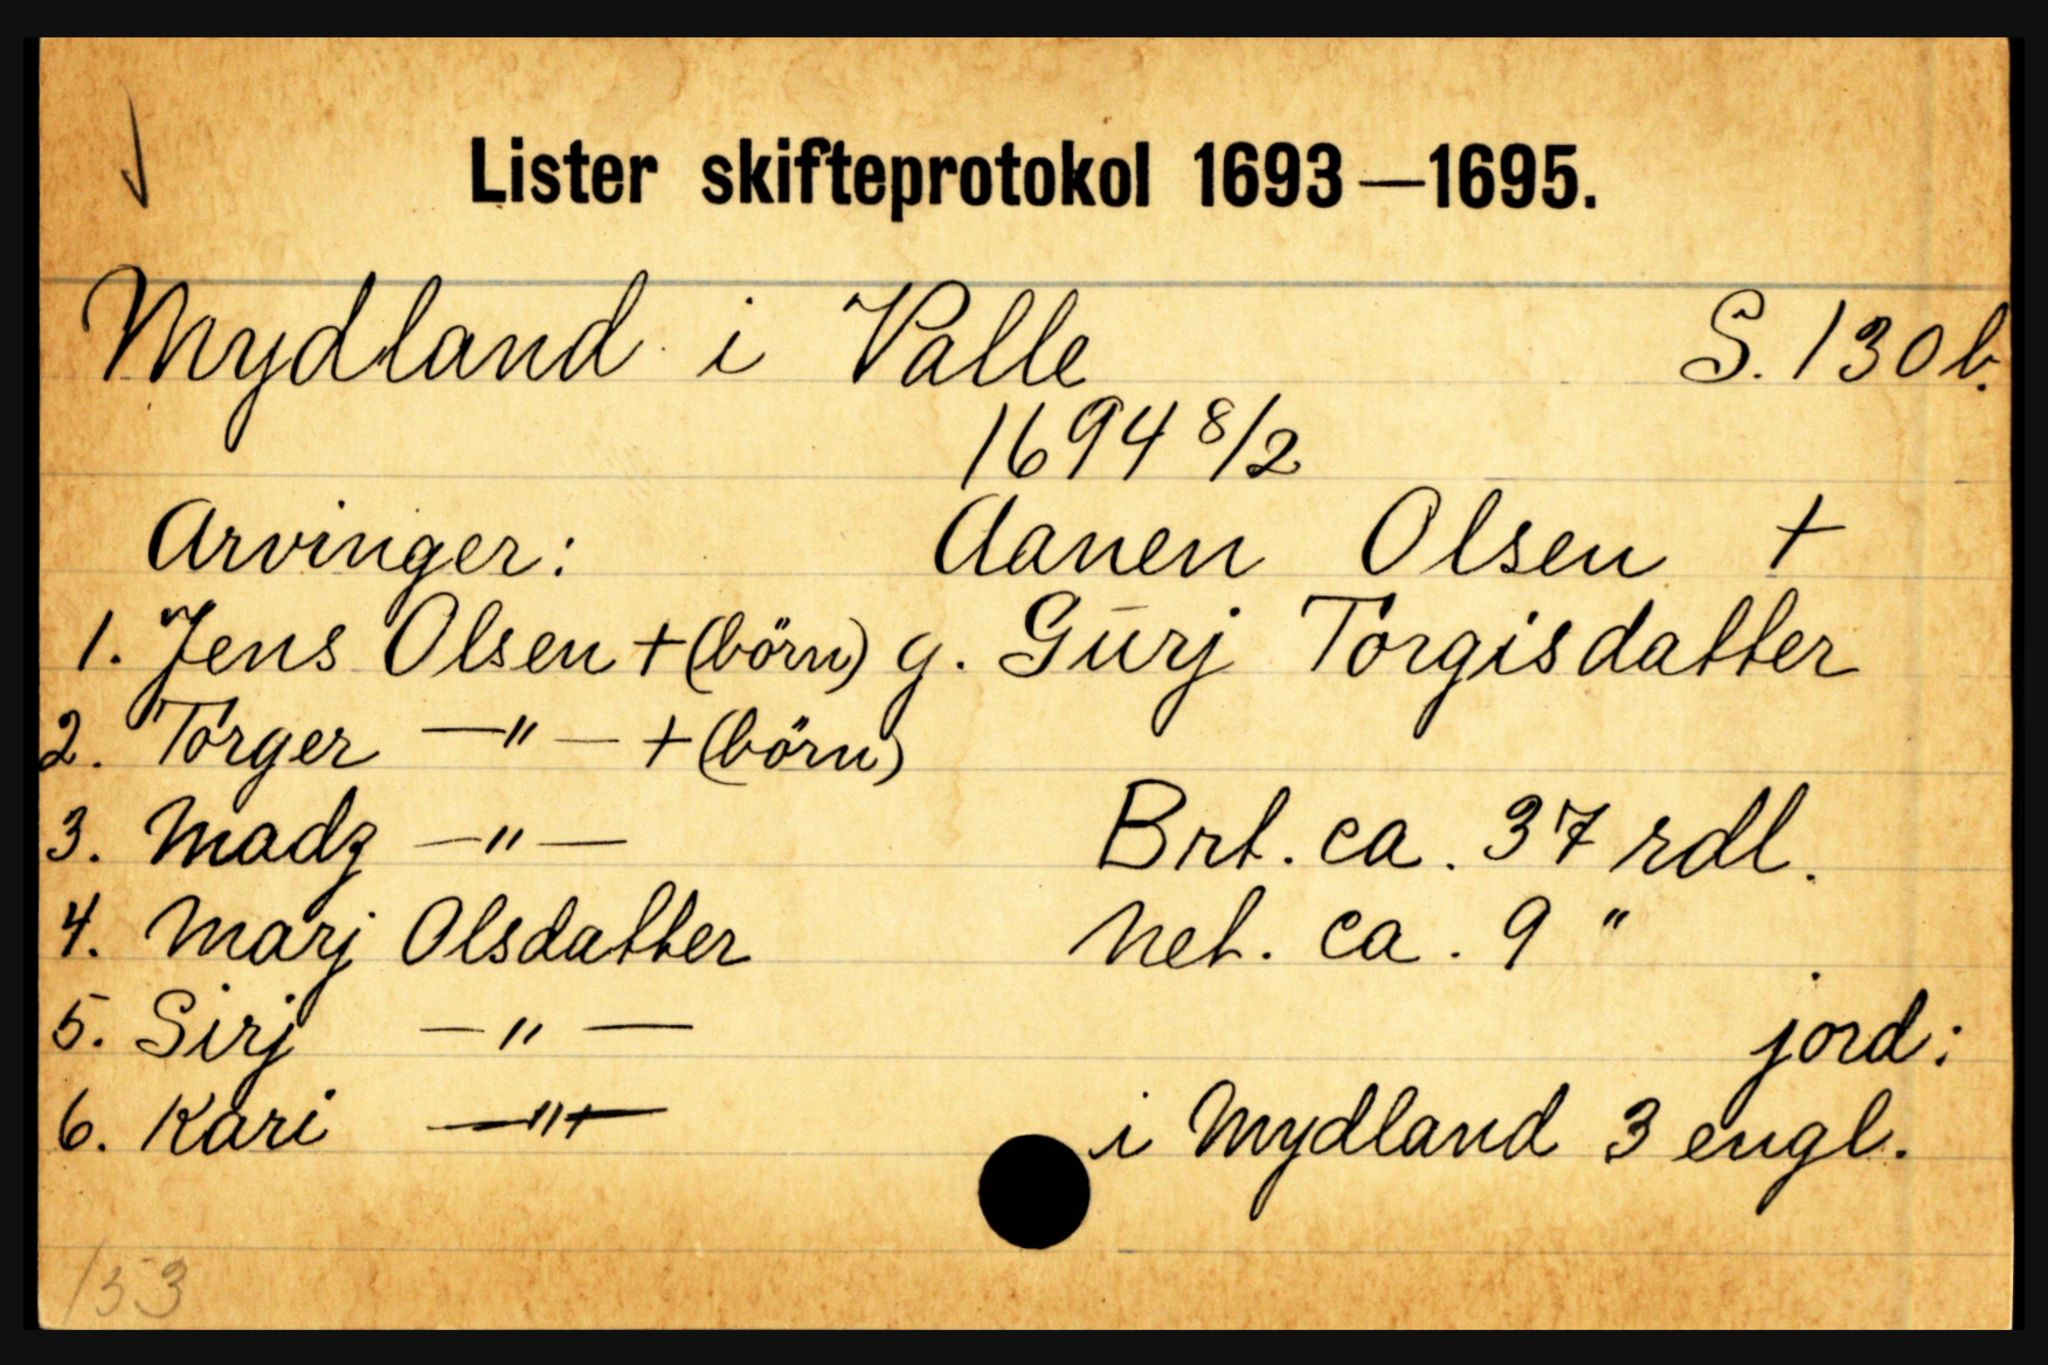 Lister skifteprotokol 1693—1695.
Mydland i Valle S. 130b.
1694 8/2
Arvinger: Aanen Olsen +
1. Jens Olsen + (börn) g. Gurj Torgisdatter
2. Torger —"— + (börn)
3. Madz —"— Brt. ca. 37 rdl.
4. Marj Olsdatter Net. ca. 9 "
5. Sirj —"— jord:
6. Kari —"— i Mydland 3 engl.
153